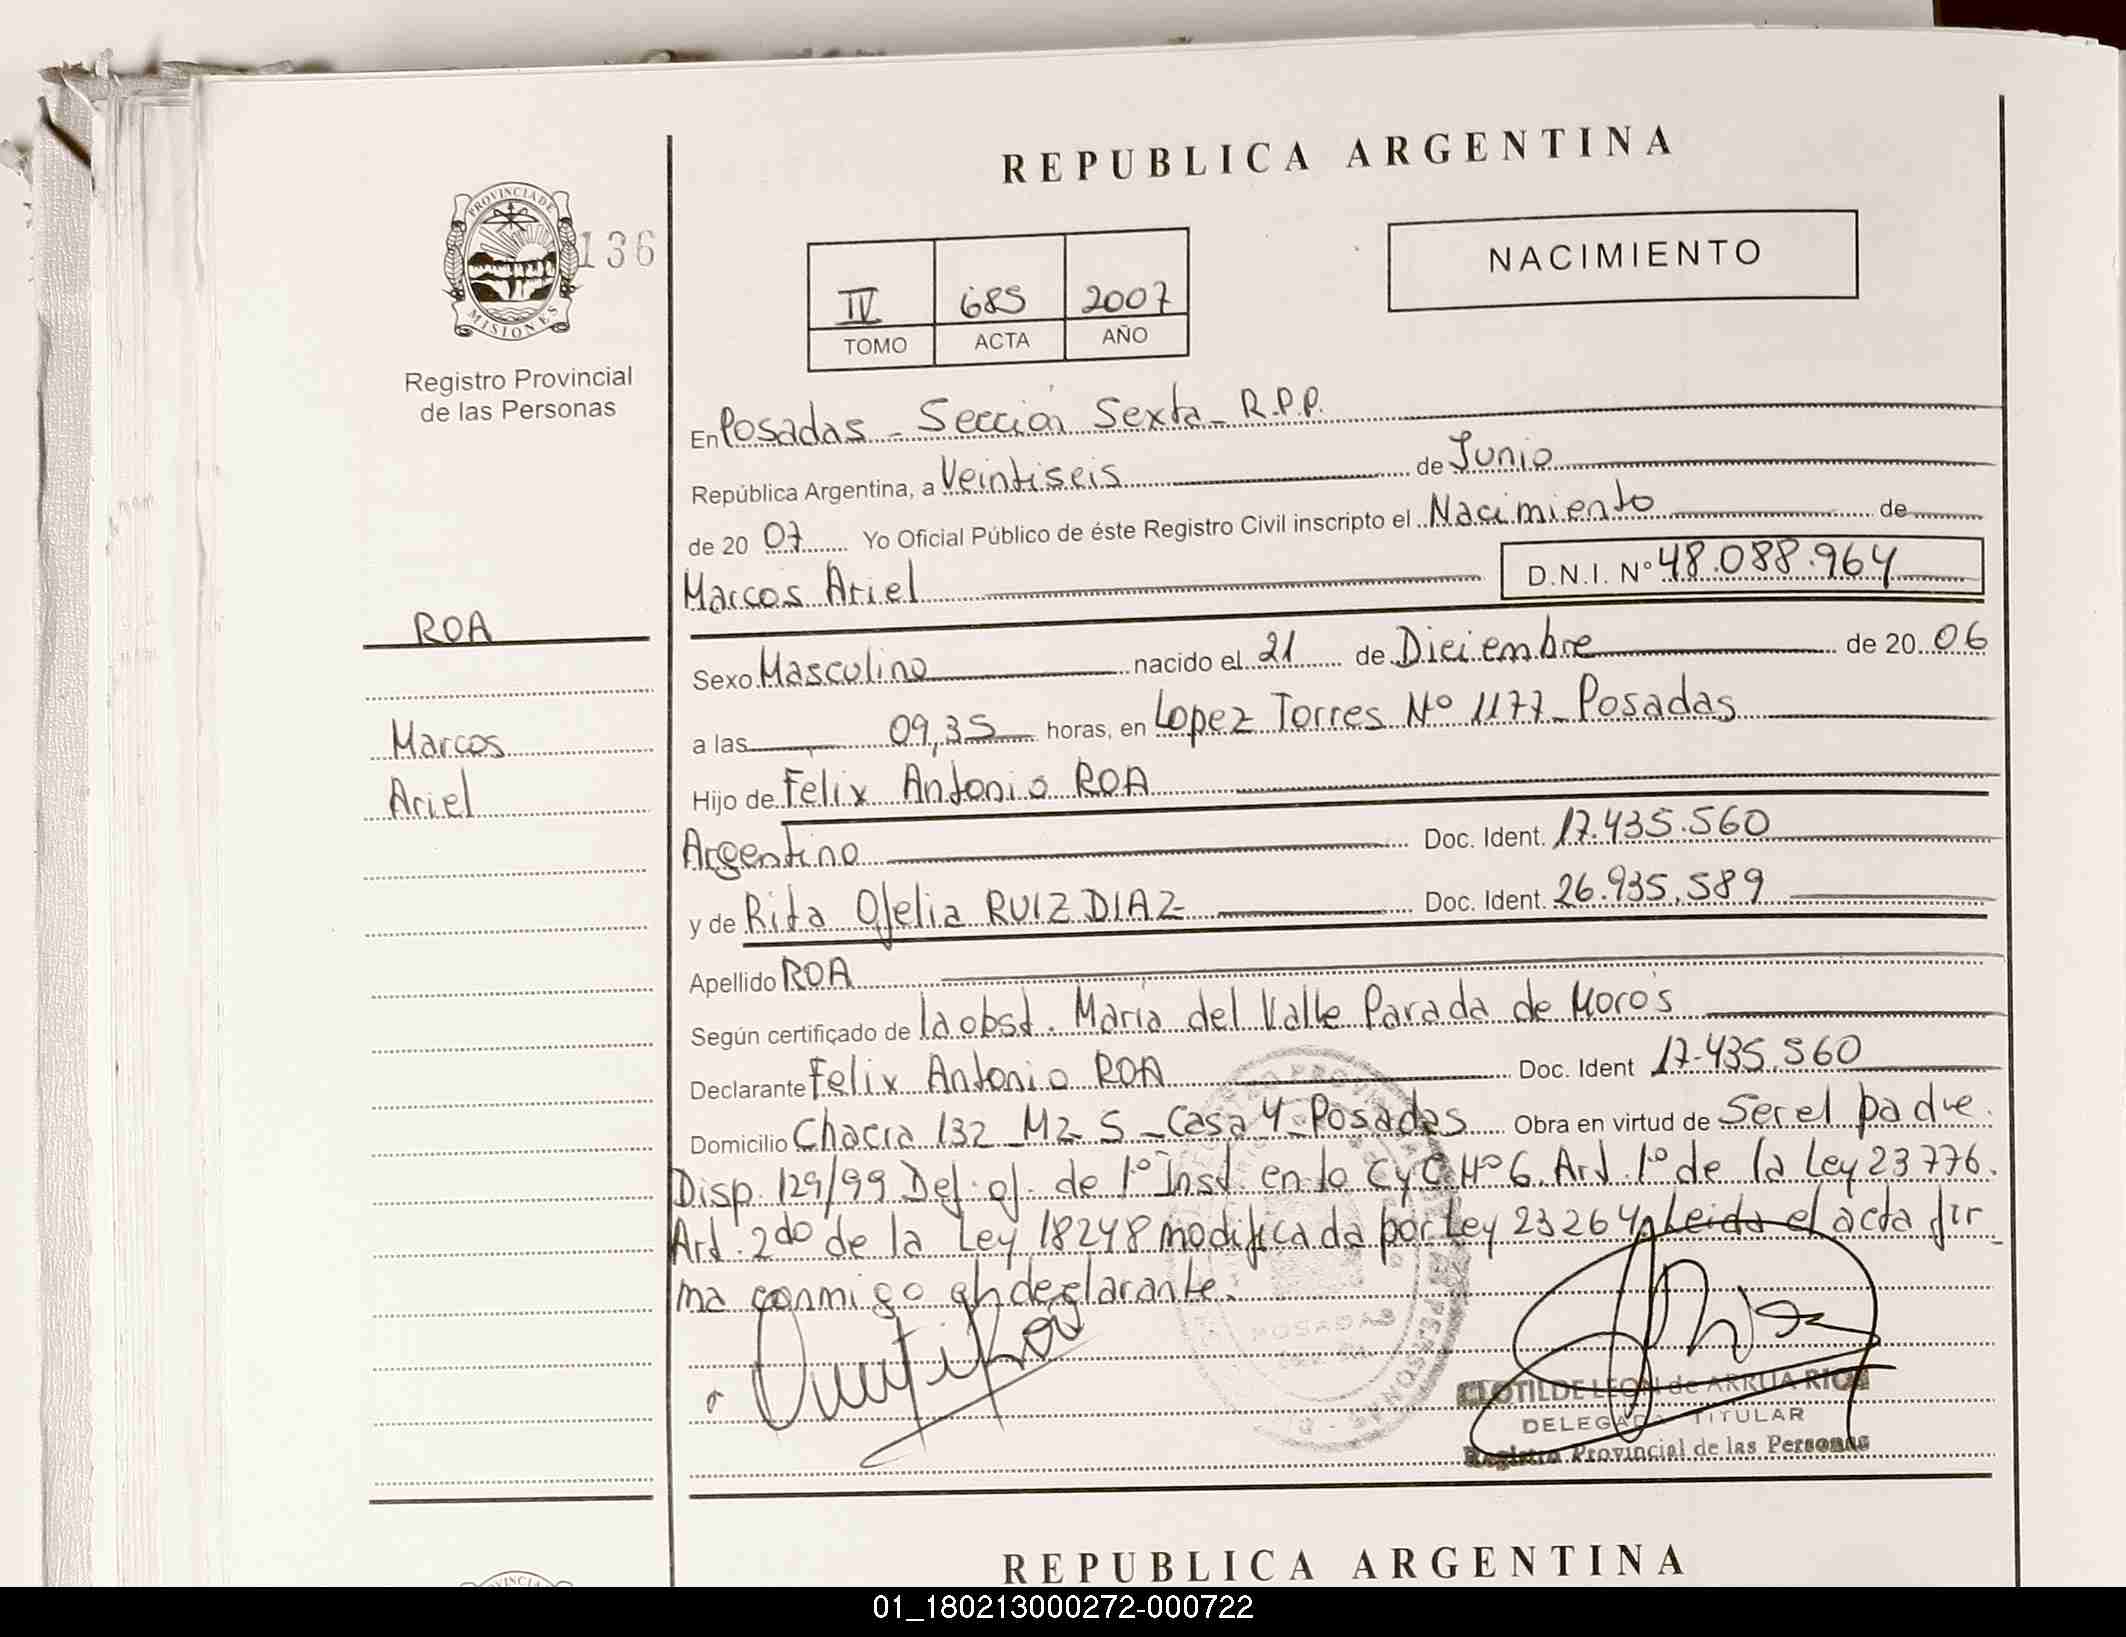 REPUBLICA ARGENTINA
PROVINCIA DE
MISIONES
136
Registro Provincial
de las Personas
IV 685 2007
TOMO ACTA AÑO
NACIMIENTO
ROA
Marcos
Ariel
En Posadas - Sección Sexta - R.P.P.
República Argentina, a Veintiseis de Junio
de 20 07 Yo Oficial Público de éste Registro Civil inscripto el Nacimiento de
Marcos Ariel D.N.I. Nº 48.088.964
Sexo Masculino nacido el 21 de Diciembre de 20 06
a las 09,35 horas, en Lopez Torres Nº 1177 - Posadas
Hijo de Felix Antonio ROA
Argentino Doc. Ident. 17.435.560
y de Rita Ofelia RUIZ DIAZ Doc. Ident. 26.935.589
Apellido ROA
Según certificado de la obst. María del Valle Parada de Moros
Declarante Felix Antonio ROA Doc. Ident 17.435.560
Domicilio Chacra 132 - Mz 5 - Casa 4 - Posadas Obra en virtud de Ser el padre.
Disp. 129/99 Def. of. de 1º Inst. en lo CyC Nº 6. Art. 1º de la Ley 23776.
Art. 2do de la Ley 18248 modificada por Ley 23264. Leida el acta fir
ma conmigo el declarante.
POSADAS
CLOTILDE LEON de ARRUA RIOS
DELEGADA TITULAR
Registro Provincial de las Personas
REPUBLICA ARGENTINA
01_180213000272-000722